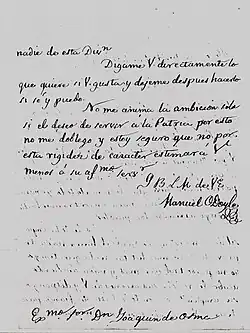 nadie de esta Divn
Digame V directamente lo
que quiere si V gusta y dejeme despues hacerlo
si sé y puedo.
No me anima la ambición solo
si el deseo de servir a la Patria por esto
no me doblego y estoy seguro que no por
esta rigidez de caracter estimará V
menos a su afmo servr
Q B L M de V E.
Manuel O Doyle
Exmo Sor Dn Joaquin de Osma